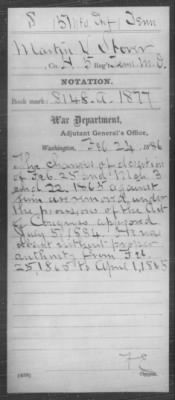 S 151 Mtd Inf Tenn
Martin V Stover
Co. A, 5 Reg't Tenn M.I.
NOTATION.
Book mark: S 148. a. 1877
War Department,
Adjutant General's Office,
Washington, Feb 24, 1886
The charges of desertion
of Feb. 25 and Mch 3
and 22, 1865 against
him are removed under
the provisions of the Act
of Congress approved
July 5, 1884. He was
absent without proper
authority from Feb.
25, 1865 to April 1, 1865